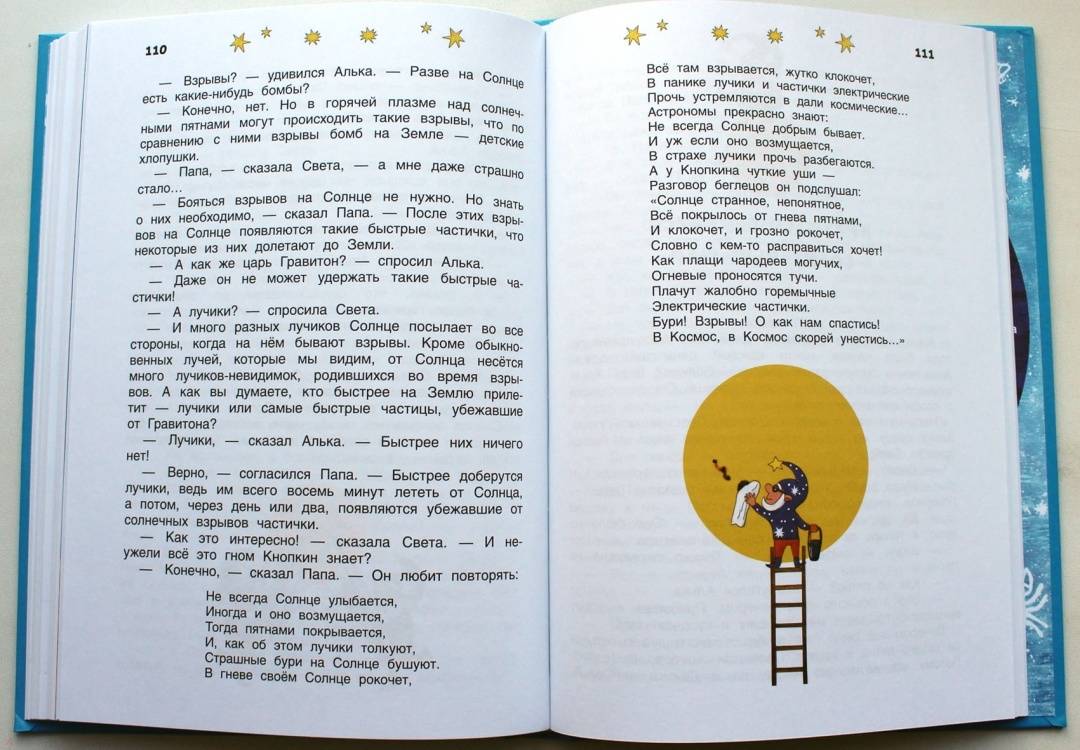 110
— Взрывы? — удивился Алька. — Разве на Солнце
есть какие-нибудь бомбы?
— Конечно, нет. Но в горячей плазме над солнеч-
ными пятнами могут происходить такие взрывы, что по
сравнению с ними взрывы бомб на Земле — детские
хлопушки.
— Папа, — сказала Света, — а мне даже страшно
стало...
— Бояться взрывов на Солнце не нужно. Но знать
о них необходимо, — сказал Папа. — После этих взры-
вов на Солнце появляются такие быстрые частички, что
некоторые из них долетают до Земли.
— А как же царь Гравитон? — спросил Алька.
— Даже он не может удержать такие быстрые ча-
стички!
— А лучики? — спросила Света.
— И много разных лучиков Солнце посылает во все
стороны, когда на нём бывают взрывы. Кроме обыкно-
венных лучей, которые мы видим, от Солнца несётся
много лучиков-невидимок, родившихся во время взры-
вов. А как вы думаете, кто быстрее на Землю приле-
тит — лучики или самые быстрые частицы, убежавшие
от Гравитона?
— Лучики, — сказал Алька. — Быстрее них ничего
нет!
— Верно, — согласился Папа. — Быстрее доберутся
лучики, ведь им всего восемь минут лететь от Солнца,
а потом, через день или два, появляются убежавшие от
солнечных взрывов частички.
— Как это интересно! — сказала Света. — И не-
ужели всё это гном Кнопкин знает?
— Конечно, — сказал Папа. — Он любит повторять:
Не всегда Солнце улыбается,
Иногда и оно возмущается,
Тогда пятнами покрывается,
И, как об этом лучики толкуют,
Страшные бури на Солнце бушуют.
В гневе своём Солнце рокочет,
111
Всё там взрывается, жутко клокочет,
В панике лучики и частички электрические
Прочь устремляются в дали космические...
Астрономы прекрасно знают:
Не всегда Солнце добрым бывает.
И уж если оно возмущается,
В страхе лучики прочь разбегаются.
А у Кнопкина чуткие уши —
Разговор беглецов он подслушал:
«Солнце странное, непонятное,
Всё покрылось от гнева пятнами,
И клокочет, и грозно рокочет,
Словно с кем-то расправиться хочет!
Как плащи чародеев могучих,
Огневые проносятся тучи.
Плачут жалобно горемычные
Электрические частички.
Бури! Взрывы! О как нам спастись!
В Космос, в Космос скорей унестись...»